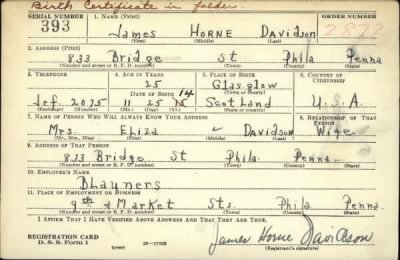 Birth Certificate in folder.
SERIAL NUMBER 1. NAME (Print) ORDER NUMBER
393 James HORNE Davidson
(First) (Middle) (Last)
2. ADDRESS (Print)
833 Bridge St Phila Penna
(Number and street or R. F. D. number) (Town) (County) (State)
3. TELEPHONE 4. AGE IN YEARS 5. PLACE OF BIRTH 6. COUNTRY OF CITIZENSHIP
25 Glasgow
DATE OF BIRTH 14 (Town or county)
Jef 2075 11 25 15 Scotland U.S.A
(Exchange) (Number) (Mo.) (Day) (Yr.) (State or country)
7. NAME OF PERSON WHO WILL ALWAYS KNOW YOUR ADDRESS 8. RELATIONSHIP OF THAT PERSON
Mrs. Eliza Davidson Wife
(Mr., Mrs., Miss) (First) (Middle) (Last)
9. ADDRESS OF THAT PERSON
833 Bridge St Phila. Penna.
(Number and street or R. F. D. number) (Town) (County) (State)
10. EMPLOYER'S NAME
BLauners
11. PLACE OF EMPLOYMENT OR BUSINESS
9th & Market Sts. Phila Penna.
(Number and street or R. F. D. number) (Town) (County) (State)
I AFFIRM THAT I HAVE VERIFIED ABOVE ANSWERS AND THAT THEY ARE TRUE.
REGISTRATION CARD
D. S. S. Form 1 (over) 16—17105 James Horne Davidson
(Registrant's signature)